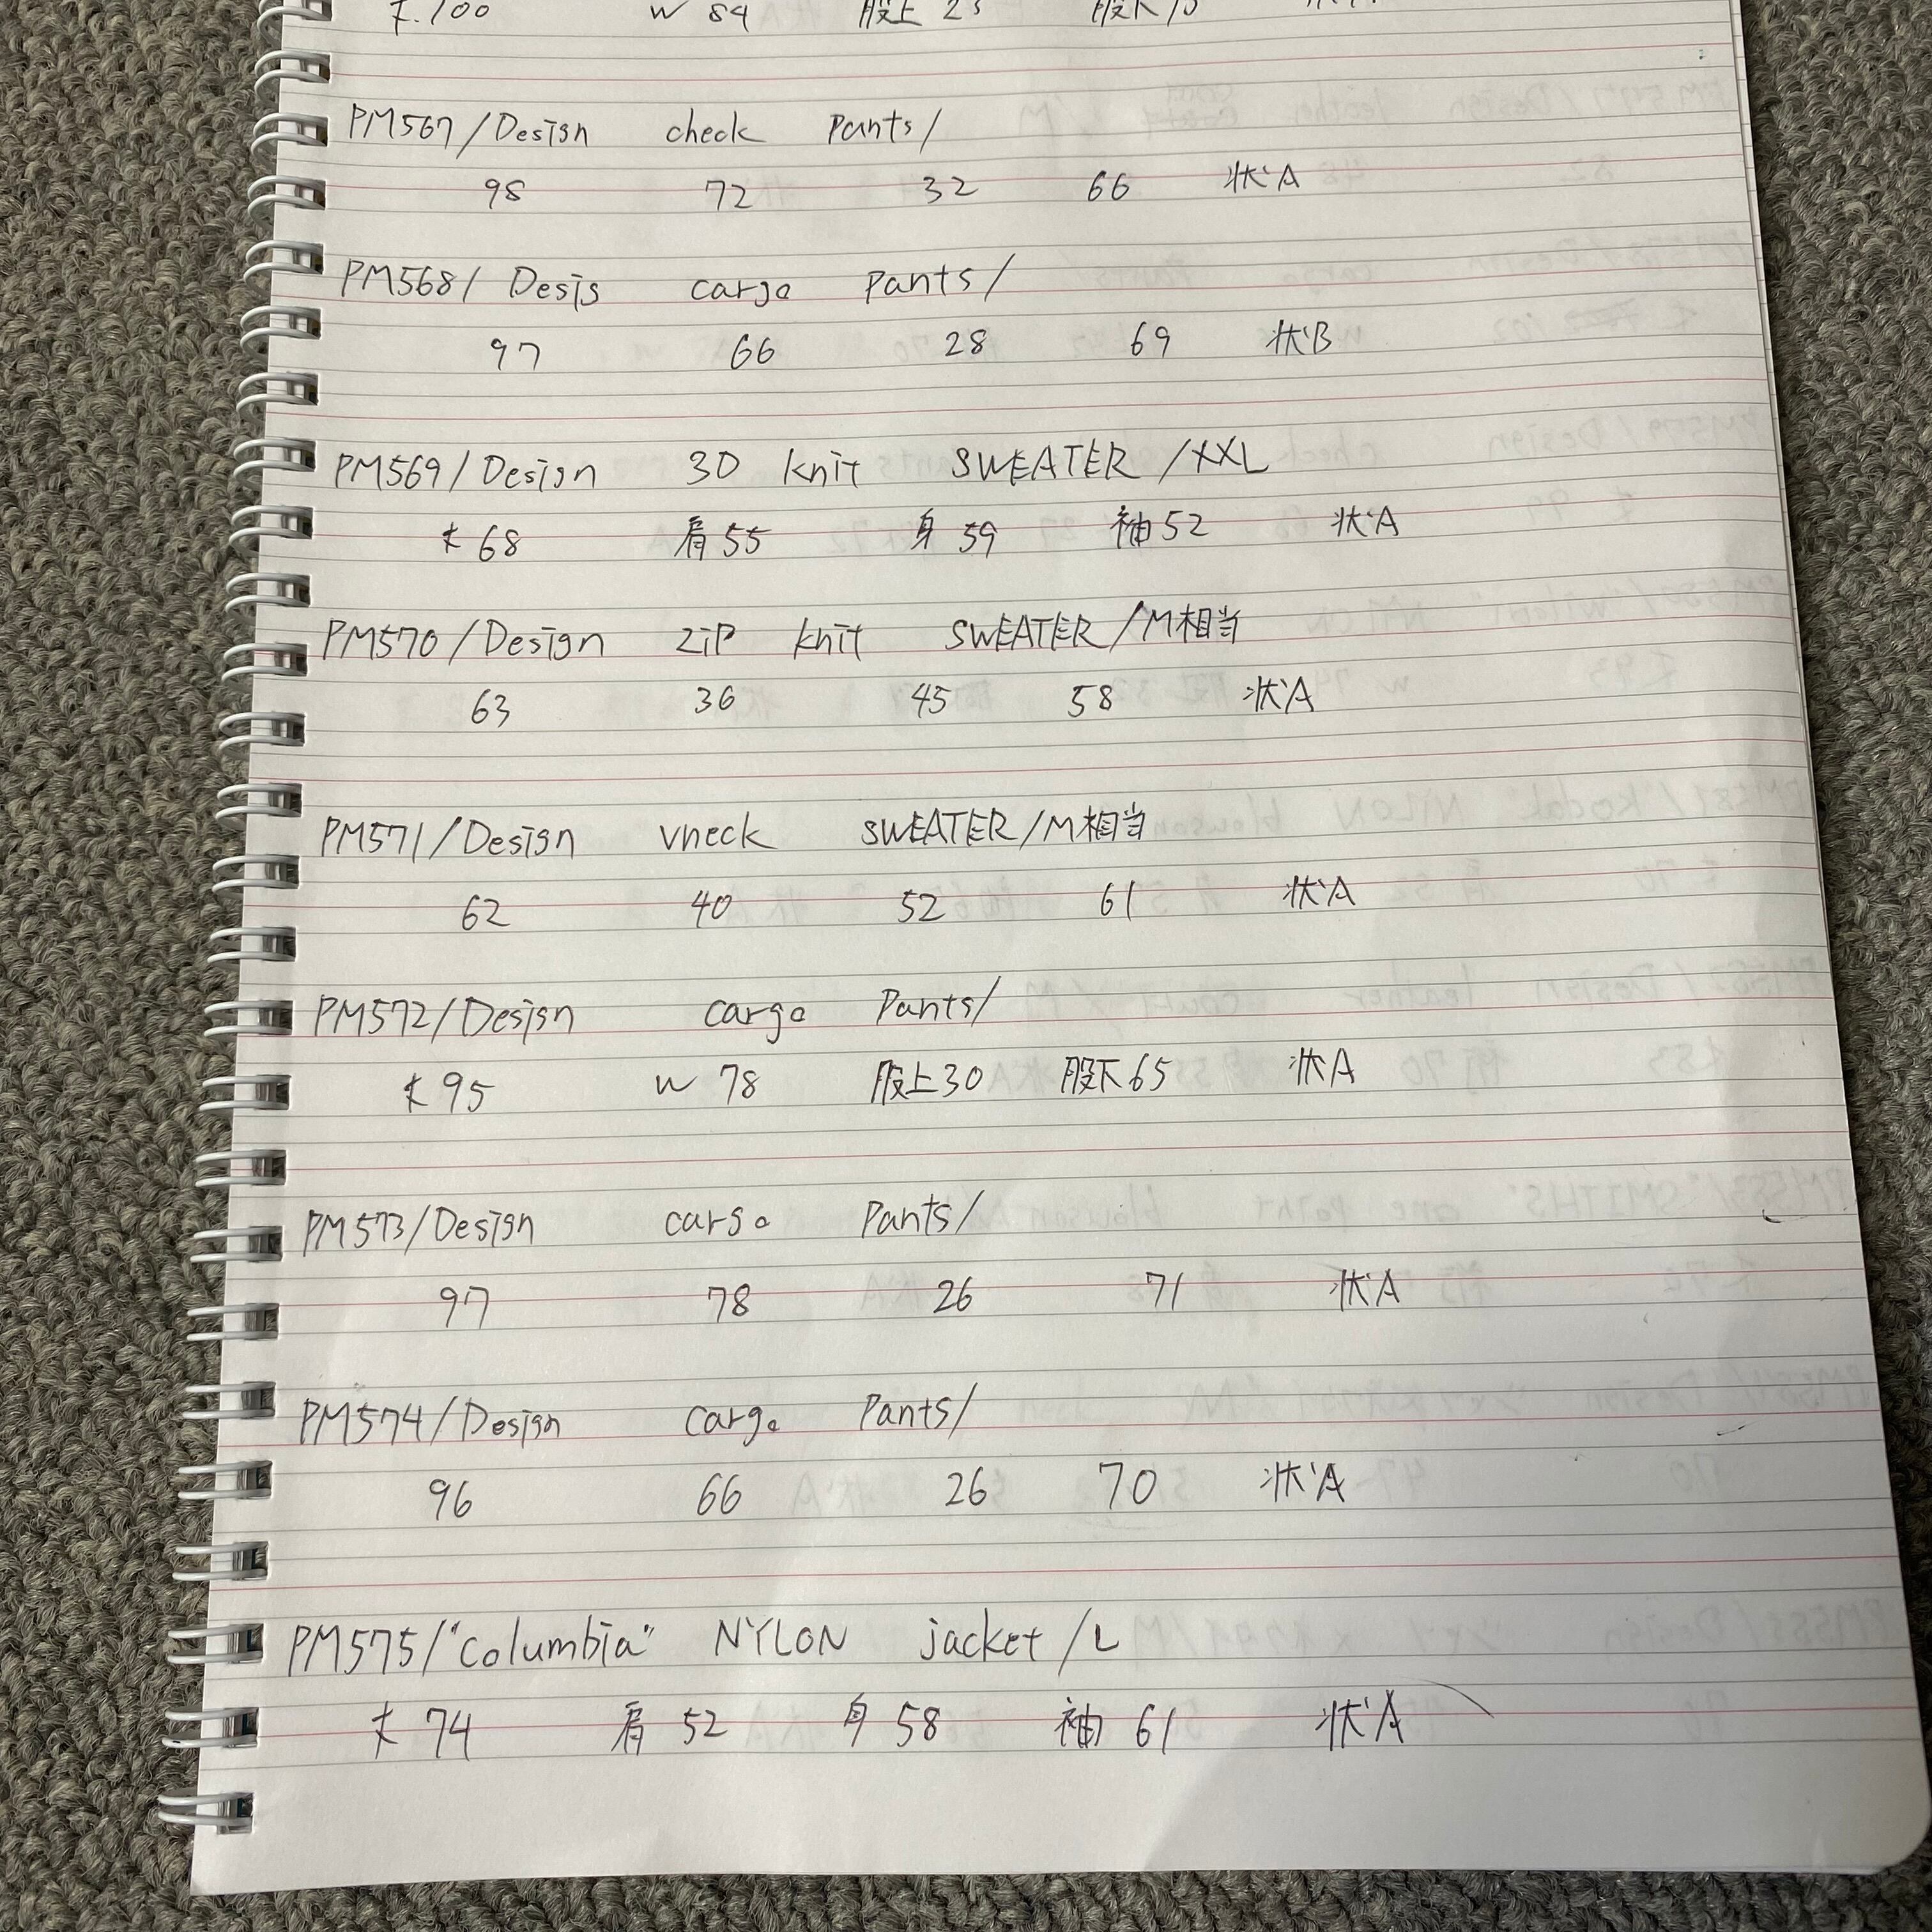 100 W 84 股上 股下
PM567/Design check Pants/
98 72 32 66 状A
PM568/Desis cargo Pants/
97 66 28 69 状B
PM569/Design 3D knit SWEATER/XXL
丈68 肩55 身59 袖52 状A
PM570/Design ZiP knit SWEATER/M相当
63 36 45 58 状A
PM571/Design vneck SWEATER/M相当
62 40 52 61 状A
PM572/Design cargo Pants/
丈95 W 78 股上30 股下65 状A
PM573/Design cargo Pants/
97 78 26 71 状A
PM574/Design cargo Pants/
96 66 26 70 状A
PM575/"Columbia" NYLON jacket/L
丈74 肩52 身58 袖61 状A